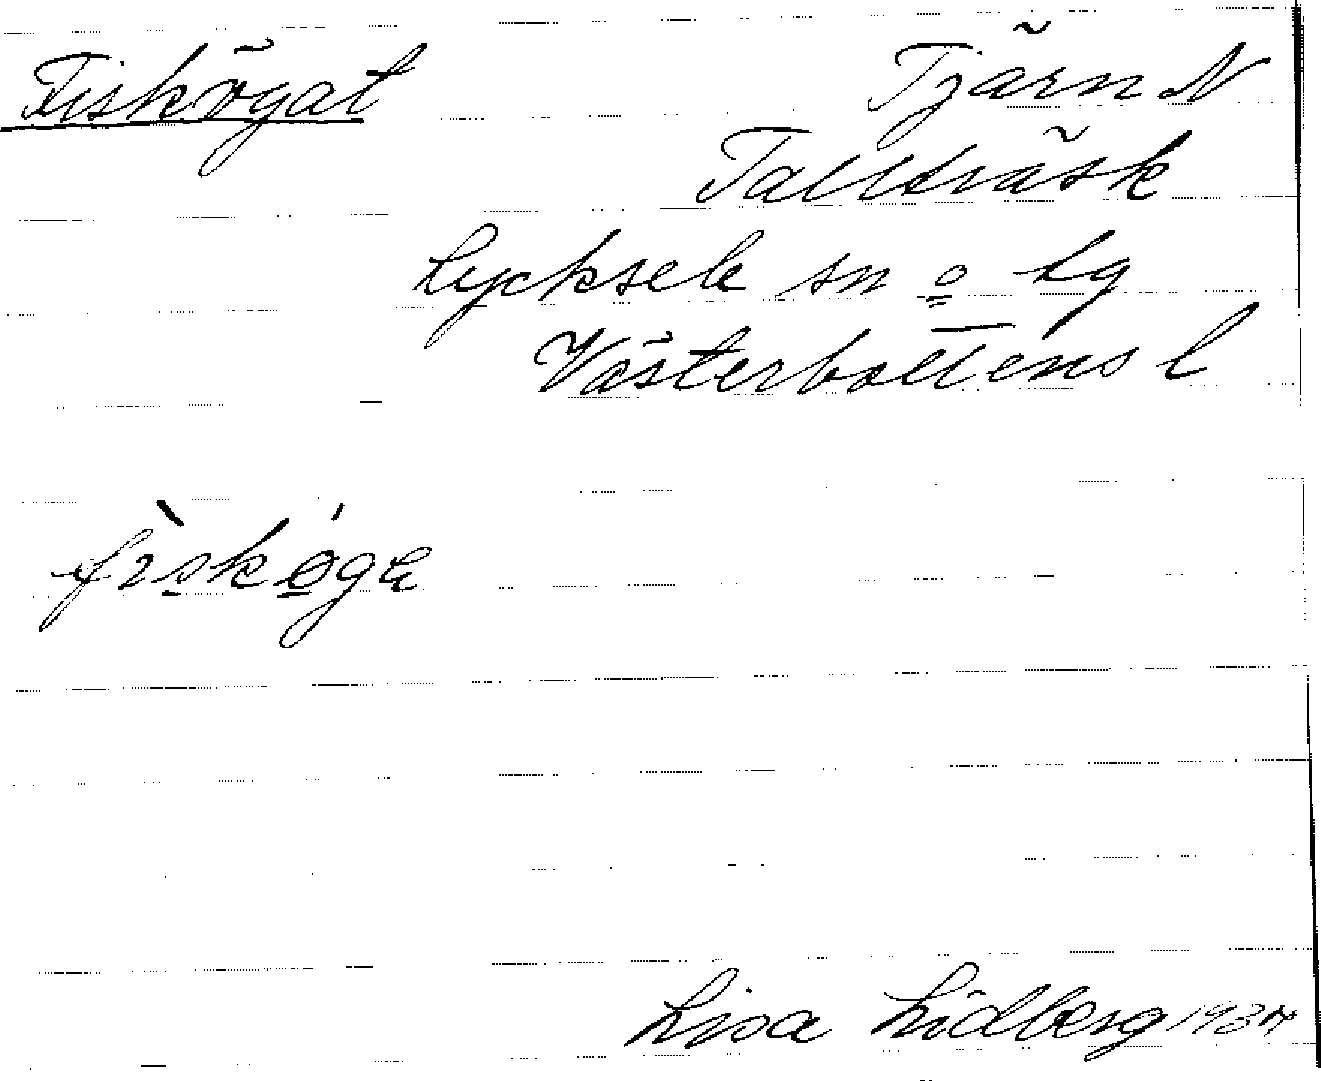 Fiskögat Tjärn N
Tallträsk
Lycksele sn o lg
Västerbottens l
Lisa Lidberg